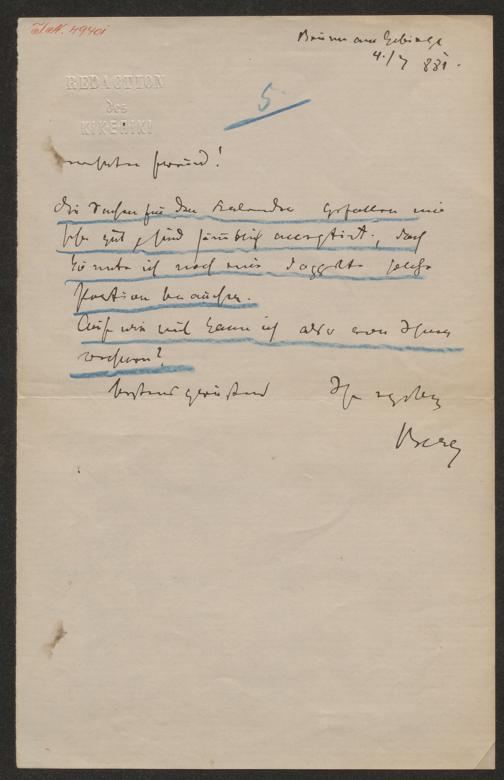 I.N. 49401
Brunn am Gebirge
4./7 881.
REDACTION
des
KIKERIKI
5
Freund!
Die Sachen für den Kalender gefallen mir
sehr gut, sind sämtlich acceptirt, doch
könnte ich noch eine doppelte solche
Portion brauchen.
Auf wie viel kann ich also von Ihnen
rechnen?
bestens grüßend Ihr ergeben
Berg